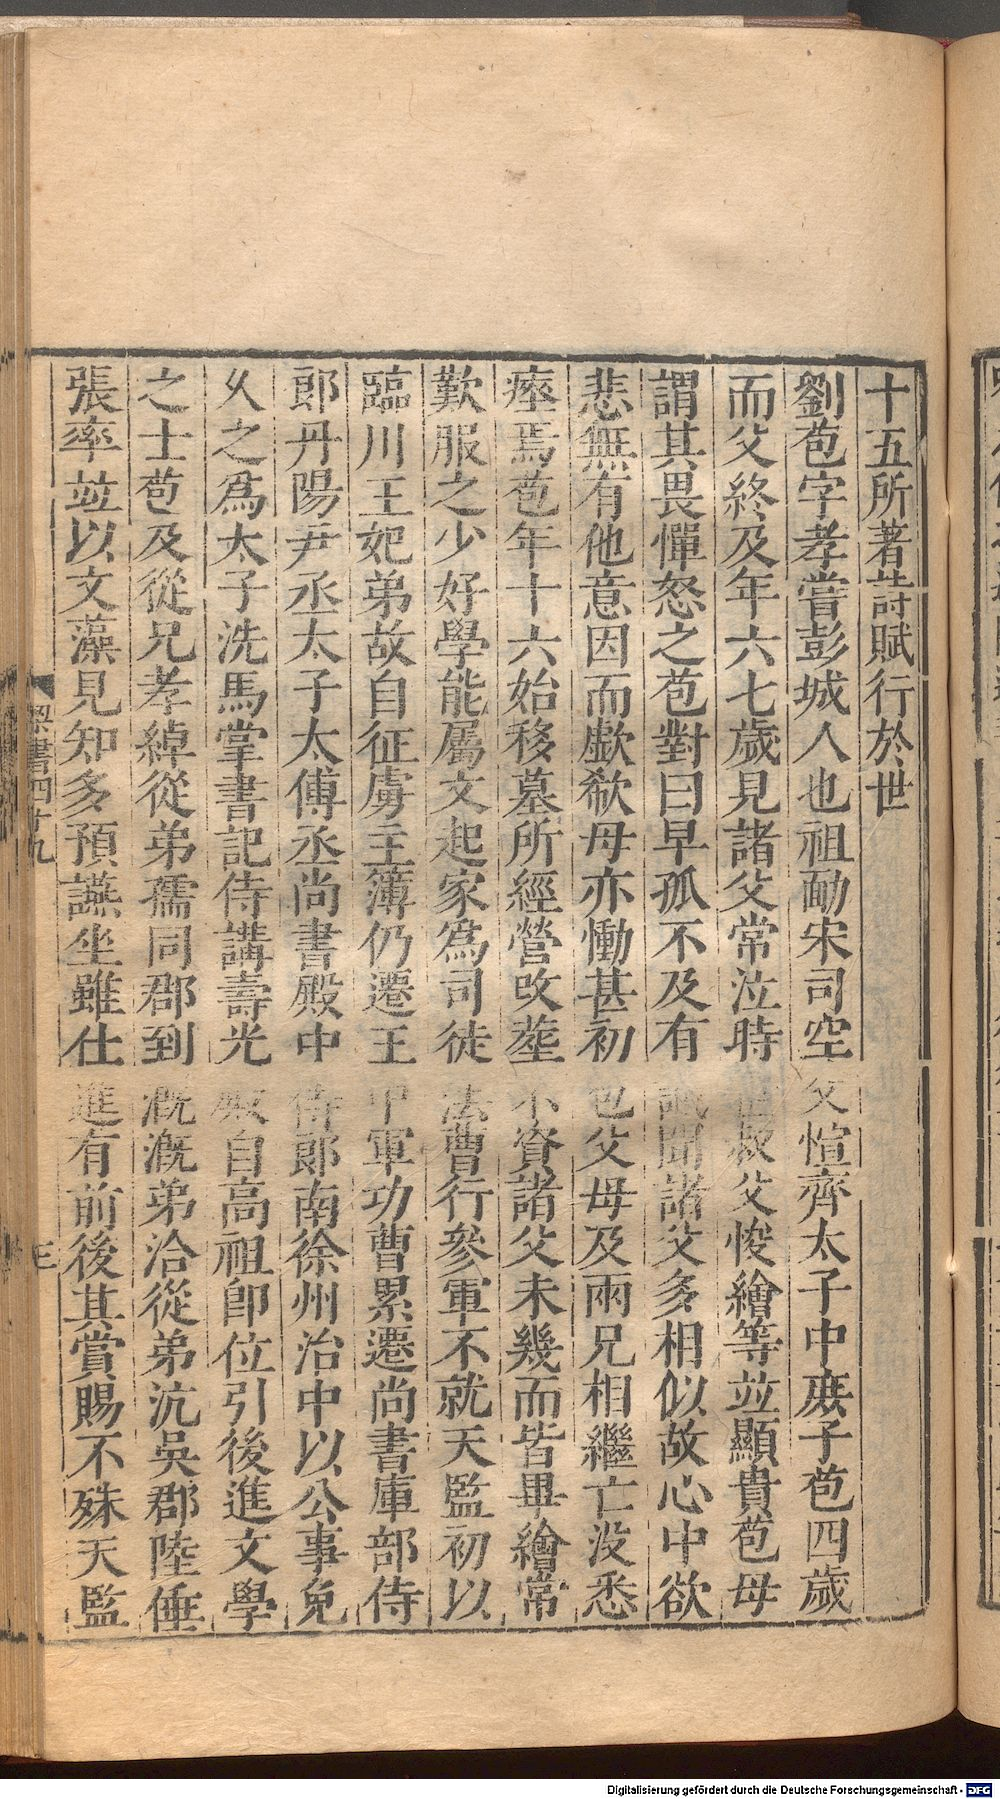 十五所著詩賦行於世
劉苞字孝嘗彭城人也祖勔宋司空父愃齊太子中庶子苞四歲
而父終及年六七歲見諸父常泣時伯叔父悛繪等並顯貴苞母
謂其畏憚怒之苞對曰早孤不及有識聞諸父多相似故心中欲
悲無有他意因而歔欷母亦慟甚初苞父母及兩兄相繼亡没悉
瘞焉苞年十六始移墓所經營改葬不資諸父未幾而皆畢繪常
歎服之少好學能屬文起家爲司徒法曹行參軍不就天監初以
臨川王妃弟故自征虜主簿仍遷王中軍功曹累遷尚書庫部侍
郎丹陽尹丞太子太傅丞尚書殿中侍郎南徐州治中以公事免
乆之爲太子洗馬掌書記侍講壽光殿自高祖卽位引後進文學
之士苞及從兄孝綽從弟孺同郡到漑漑弟洽從弟沆吳郡陸倕
張率並以文藻見知多預讌坐雖仕進有前後其賞賜不殊天監
梁書四十九
三
Digitalisierung gefördert durch die Deutsche Forschungsgemeinschaft - DFG